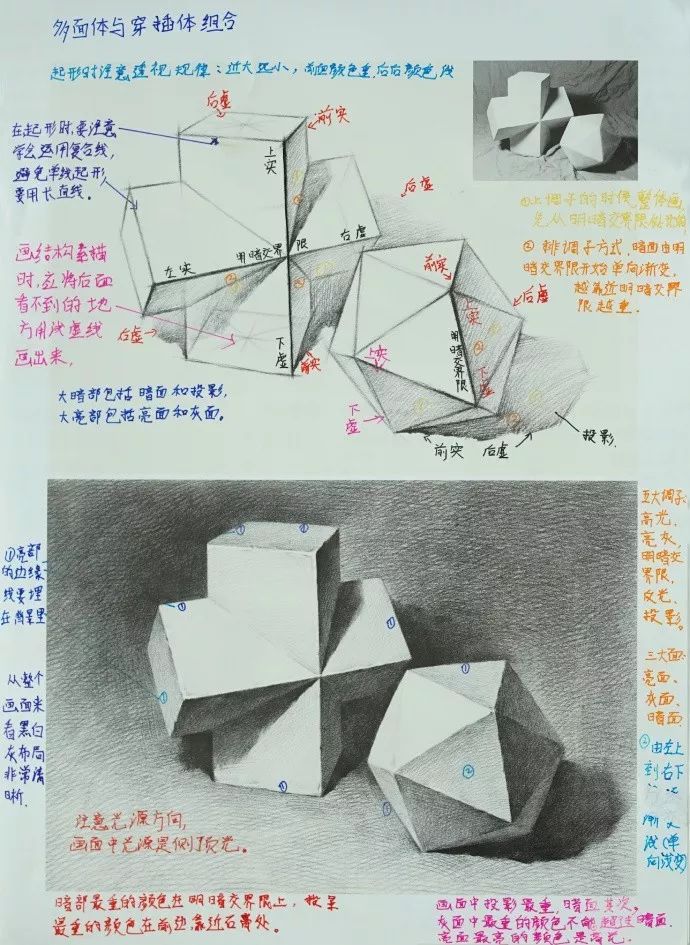 多面体与穿插体组合
起形时注意透视规律：近大远小，前面颜色重，后面颜色浅
在起形时，要注意
学会运用复合线，
避免单线起形
要用长直线。
后虚
前实
上实
后虚
①上调子的时候，整体画，
先从明暗交界限处
②排调子方式，暗面由明
暗交界限开始单向渐变，
越靠近明暗交界
限越重。
画结构素描
时，应将后面
看不到的地
方用浅虚线
画出来。
左实
明暗交界限
右虚
后虚
下虚
前实
前实
后虚
上实
明暗交界限
下虚
上实
下虚
前实
后虚
投影
大暗部包括暗面和投影，
大亮部包括亮面和灰面。
五大调子：
高光，
亮灰，
明暗交
界限，
反光，
投影。
三大面：
亮面、
灰面、
暗面
①亮部
的边缘
线要埋
在背景里
从整个
画面来
看黑白
灰布局
非常清
晰。
②由左上
到右下
浅（单
向浅变）
注意光源方向，
画面中光源是侧顶光。
暗部最重的颜色在明暗交界限上，投影
最重的颜色在前边，靠近石膏处。
画面中投影最重，暗面其次。
灰面中最重的颜色不能超过暗面
亮面最亮的颜色是高光。